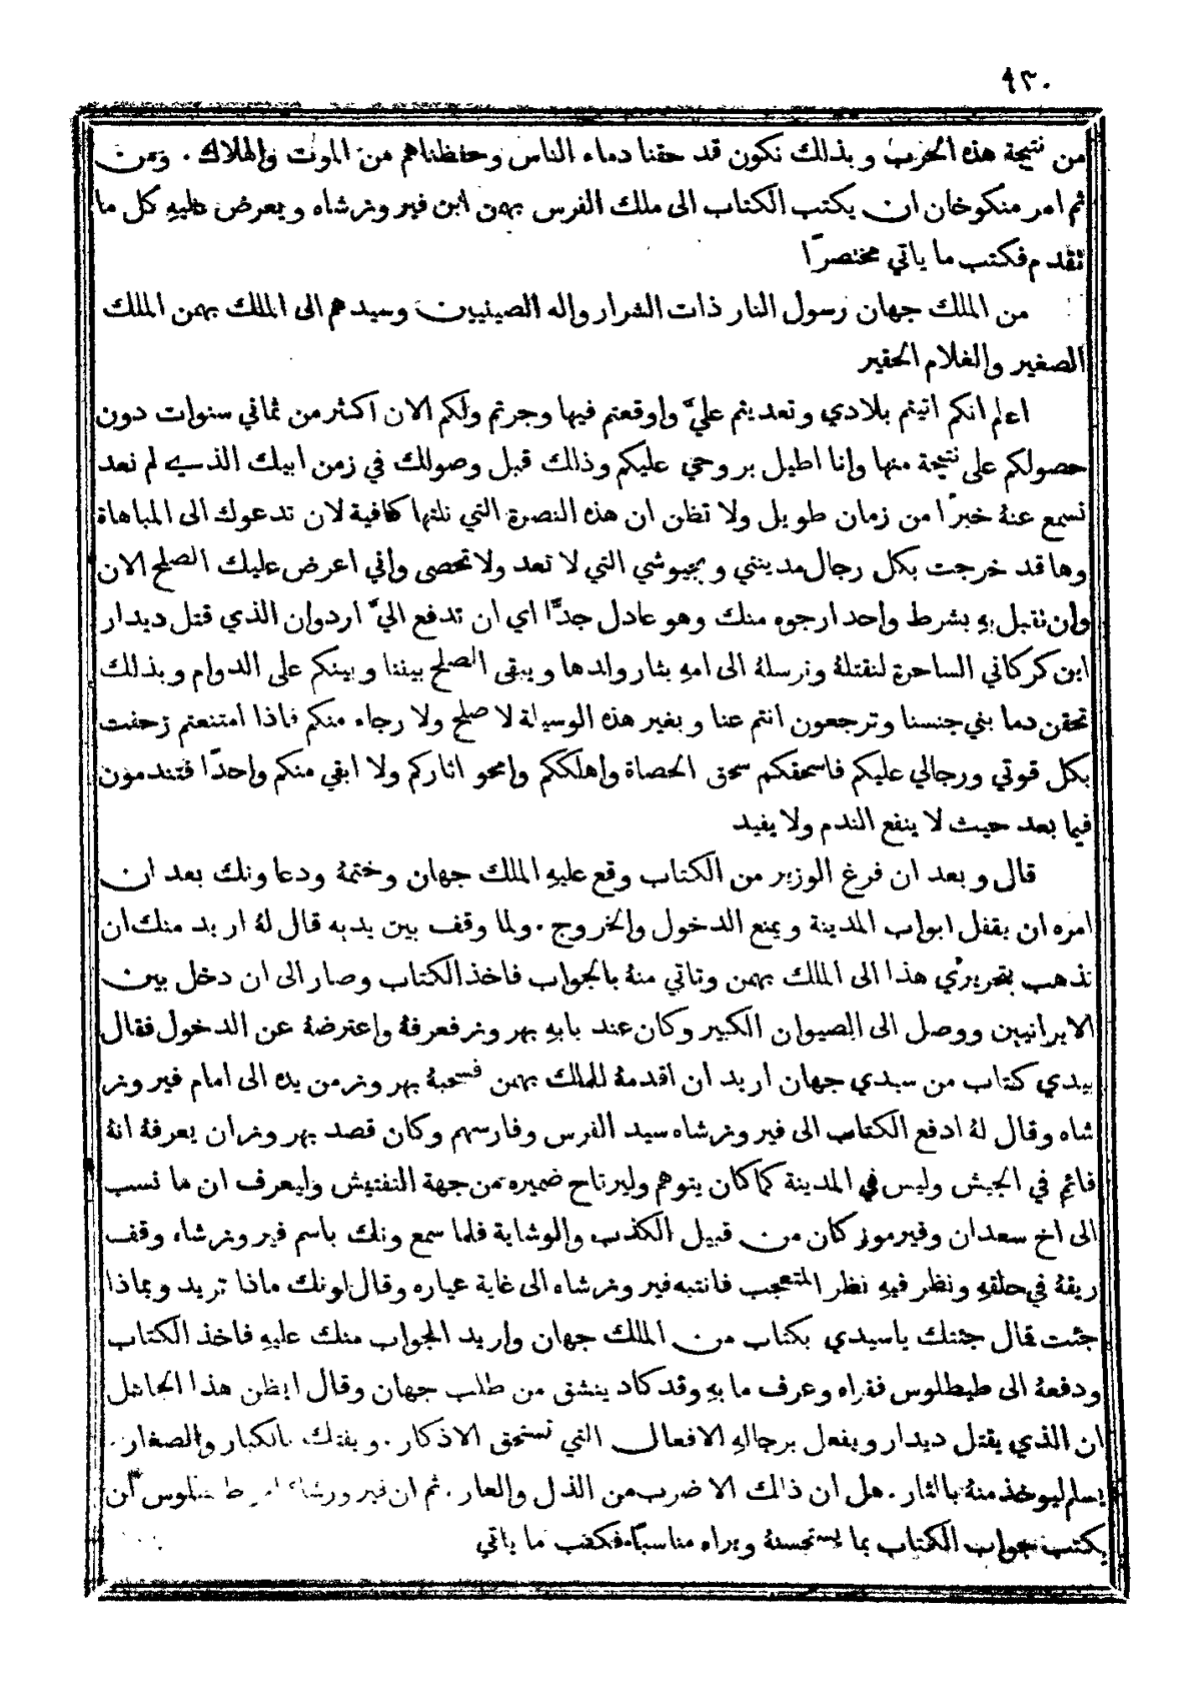 ٩٣٠
من نتيجة هذه الحرب وبذلك نكون قد حقنا دماء الناس وحفظناهم من الموت والهلاك. ومن
ثم امر منكوخان ان يكتب الكتاب الى ملك الفرس بهمن ابن فيروزشاه ويعرض عليهِ كل ما
تقدم فكتب ما ياتي مختصرًا
من الملك جهان رسول النار ذات الشرار واله الصينيين وسيدهم الى الملك بهمن الملك
الصغير والغلام الحقير
اعلم انكم اتيتم بلادي وتعديتم عليَّ واوقعتم فيها وجرتم ولكم الان اكثر من ثماني سنوات دون
حصولكم على نتيجة منها وانا اطيل بروحي عليكم وذلك قبل وصولك في زمن ابيك الذي لم نعد
نسمع عنهُ خبرًا من زمان طويل ولا تظن ان هذه النصرة التي نلتها كافية لان تدعوك الى المباهاة
وها قد خرجت بكل رجال مدينتي وبجيوشي التي لا تعد ولا تحصى واني اعرض عليك الصلح الان
وان تقبل بهِ بشرط واحد ارجوه منك وهو عادل جدًّا اي ان تدفع اليَّ اردوان الذي قتل ديدار
ابن كركاني الساحرة لنقتلهُ ونرسلهُ الى امهِ بثار ولدها ويبقى الصلح بيننا وبينكم على الدوام وبذلك
تحقن دما بني جنسنا وترجعون انتم عنا وبغير هذه الوسيلة لا صلح ولا رجاء منكم فاذا امتنعتم زحفت
بكل قوتي ورجالي عليكم فاسحقكم سحق الحصاة واهلككم وامحو اثاركم ولا ابقي منكم واحدًا فتندمون
فيما بعد حيث لا ينفع الندم ولا يفيد
قال وبعد ان فرغ الوزير من الكتاب وقع عليهِ الملك جهان وختمهُ ودعا ونك بعد ان
امره ان يقفل ابواب المدينة ويمنع الدخول والخروج. ولما وقف بين يديه قال لهُ اريد منك ان
تذهب بتحريري هذا الى الملك بهمن وتاتي منهُ بالجواب فاخذ الكتاب وصار الى ان دخل بين
الايرانيين ووصل الى الصيوان الكبير وكان عند بابهِ بهروز فعرفهُ واعترضهُ عن الدخول فقال
بيدي كتاب من سيدي جهان اريد ان اقدمهُ للملك بهمن فسحبهُ بهروز من يده الى امام فيروز
شاه وقال لهُ ادفع الكتاب الى فيروزشاه سيد الفرس وفارسهم وكان قصد بهروز ان يعرفهُ انهُ
قائم في الجيش وليس في المدينة كما كان يتوهم وليرتاح ضميره من جهة التفتيش وليعرف ان ما نسب
الى اخ سعدان وفيرموز كان من قبيل الكذب والوشاية فلما سمع ونك باسم فيروزشاه وقف
ريقهُ في حلقهِ ونظر فيهِ نظر المتعجب فانتبه فيروزشاه الى غاية عياره وقال لونك ماذا تريد وبماذا
جئت قال جئتك ياسيدي بكتاب من الملك جهان واريد الجواب منك عليهِ فاخذ الكتاب
ودفعهُ الى طيطلوس فقراه وعرف ما بهِ وقد كاد ينشق من طلب جهان وقال ايظن هذا الجاهل
ان الذي يقتل ديدار ويفعل برجالهِ الافعال التي تستحق الاذكار. ويفتك بالكبار والصغار.
يسلم ليوخذ منهُ بالثار. هل ان ذلك الا ضرب من الذل والعار. ثم ان فيروزشاه امر طيطلوس ان
يكتب جواب الكتاب بما يستحسنهُ ويراه مناسبًا فكتب ما ياتي